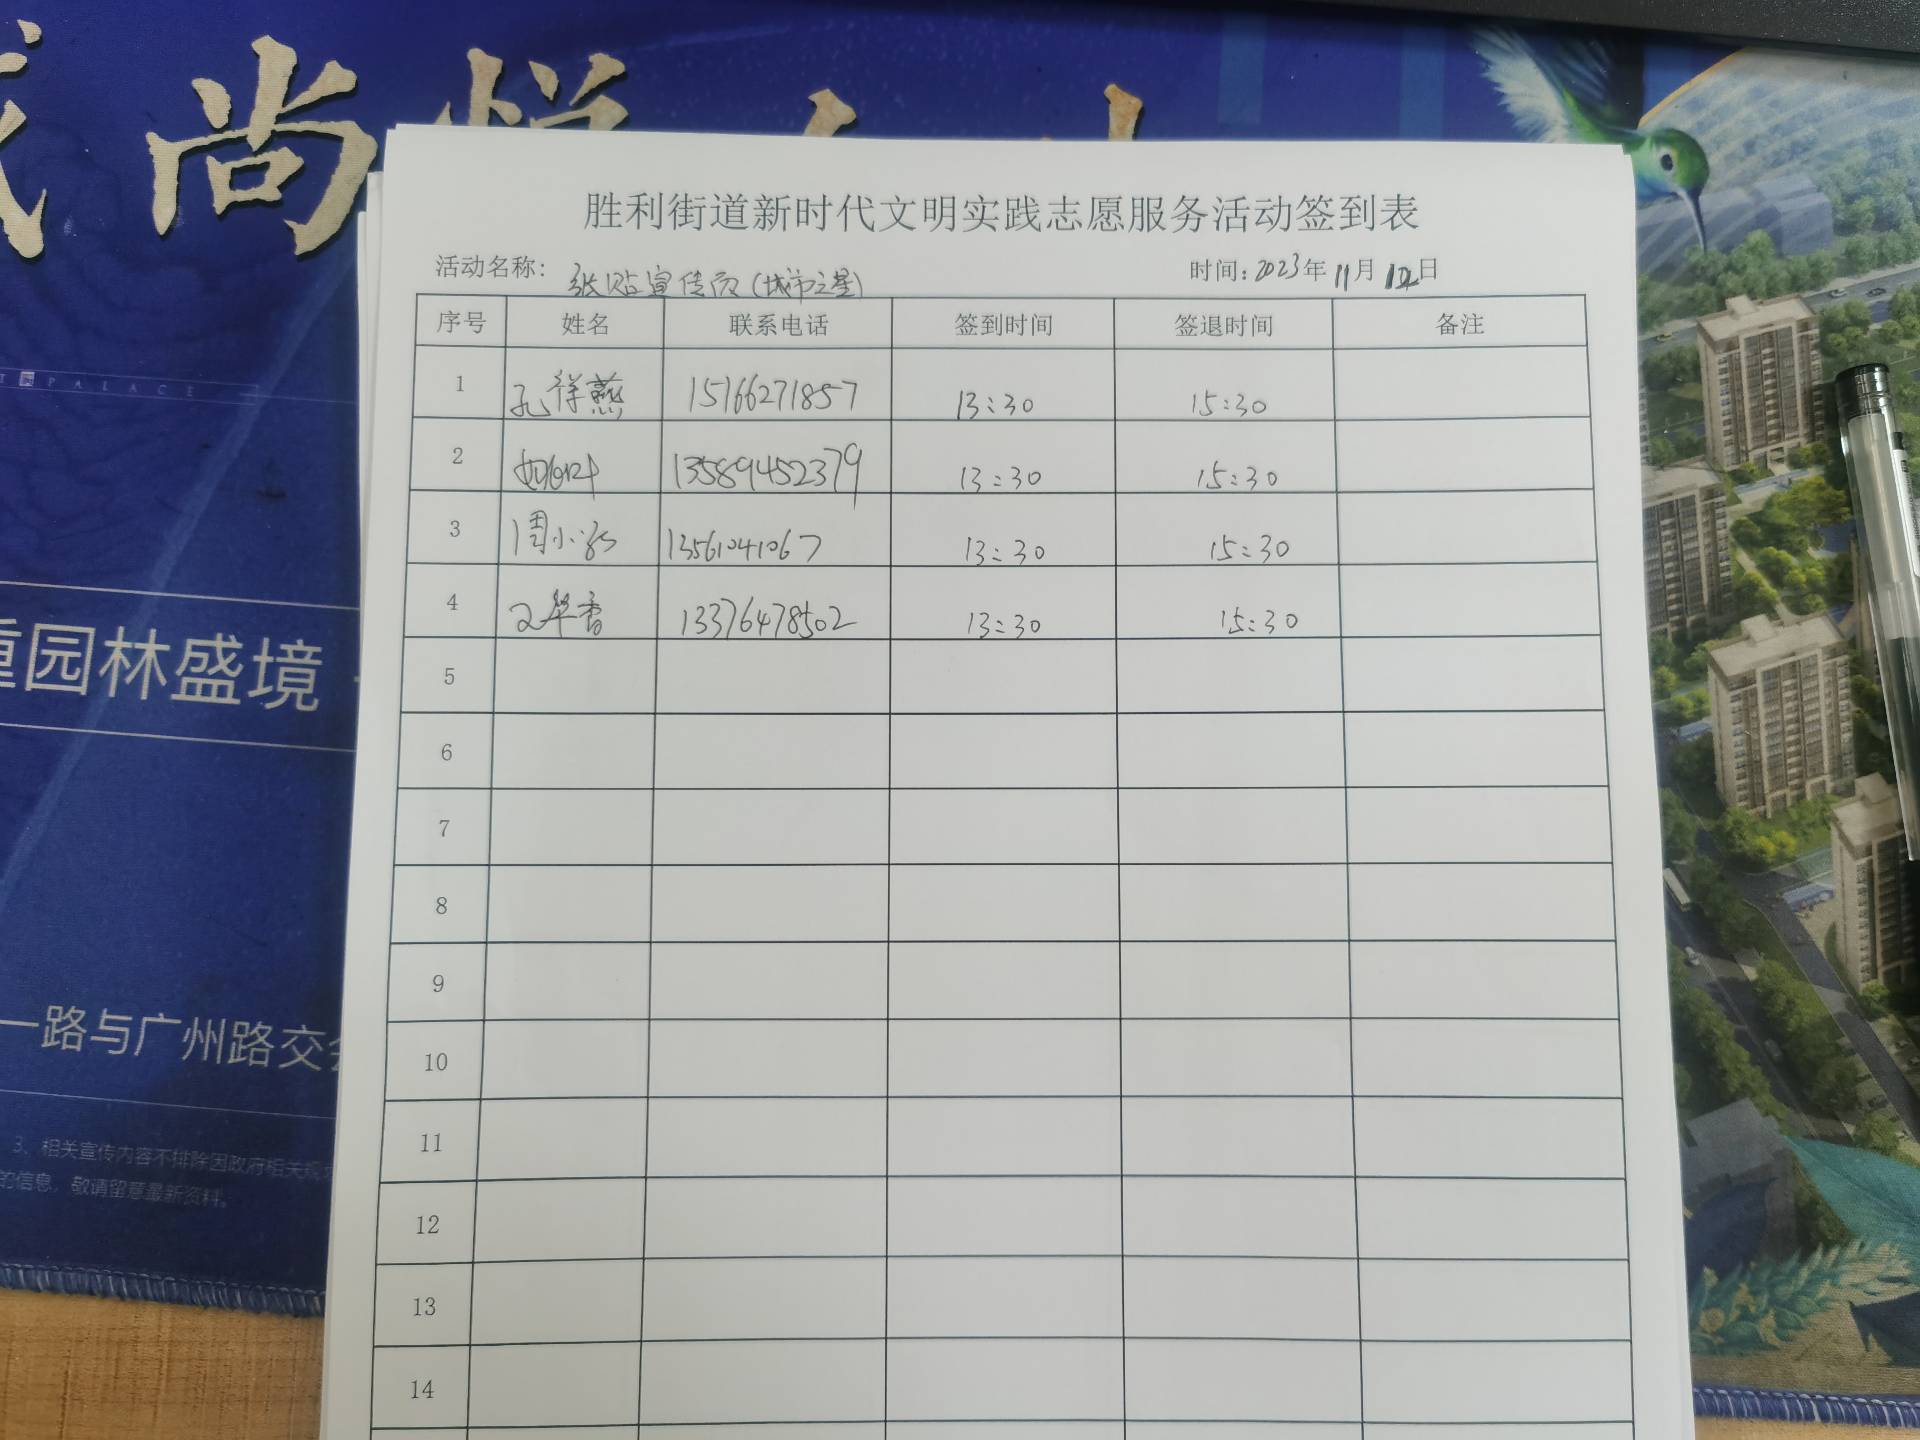 尚悦
胜利街道新时代文明实践志愿服务活动签到表
活动名称： 张贴宣传页(城市之星) 时间：2023年11月12日
序号 姓名 联系电话 签到时间 签退时间 备注
1 孔祥燕 15166271857 13:30 15:30
2 13589452379 13:30 15:30
3 周小 13561041067 13:30 15:30
4 华香 13376478502 13:30 15:30
5
6
7
8
9
10
11
12
13
14
PALACE
重园林盛境
一路与广州路交
3、相关宣传内容不排除因政府相关规
的信息，敬请留意最新资料。